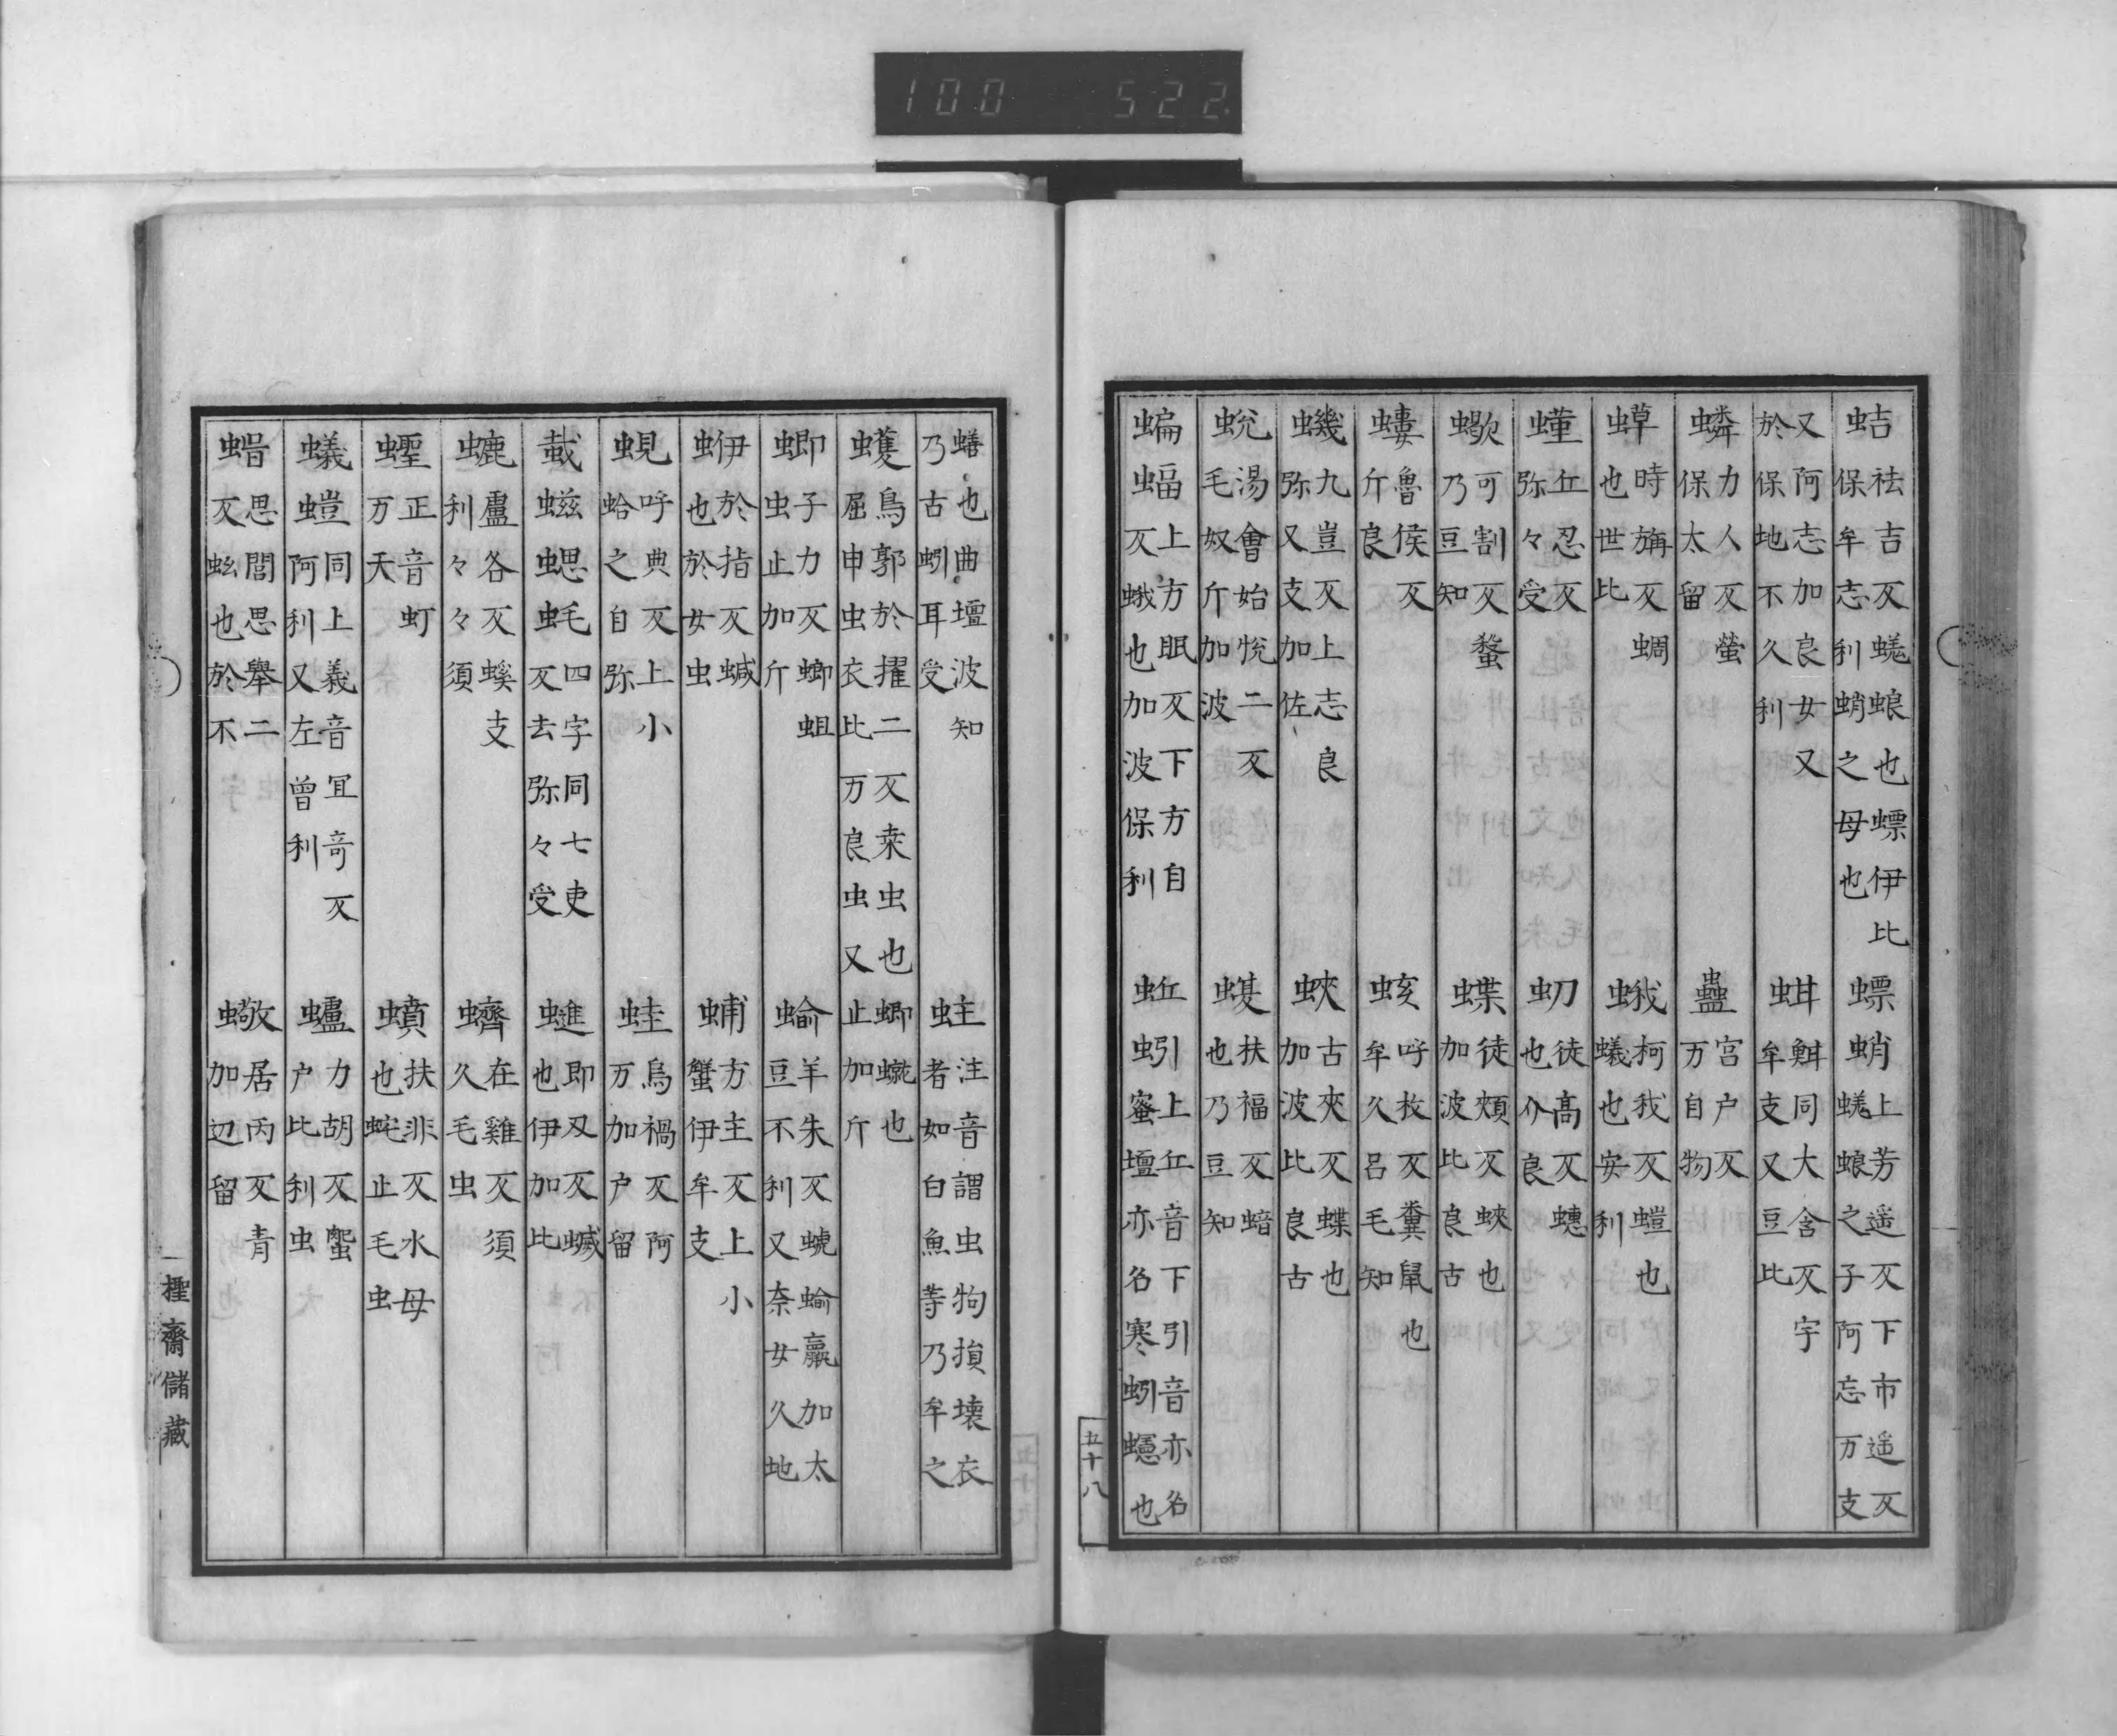 蛣祛吉反蜣蜋也螵伊比保牟志利蛸之母也　螵蛸上芳遥反下市遥反蜣蜋之子阿忘万支
又阿志加良女又於保地不久利　蚶同大含反宇牟支又豆比
力人反螢保太留　蠱宮户反万自物
時旃反蜩也世比　蛾柯我反螘也蟻也安利
螼丘忍反弥々受　虭徒高反蟪也介良
蠍可割反蝥乃豆知　蝶徒頰反蛺也加波比良古
螻魯侯反斤良　呼枚反糞鼠也牟久呂毛知
蟣九豈反上志良弥又支加佐　蛺古夾反蝶也加波比良古
蛻湯會始悦二反毛奴斤加波　蝮扶福反也乃豆知
蝙蝠上方眠反下方自反蛾也加波保利　蚯蚓上丘音下引音亦名蜜壇亦名寒蚓蟪也
五十八
蟮也曲壇波知乃古蚓耳受　蛀注音謂虫物損壊衣者如白魚等乃牟之
蠖烏郭於擢二反桒虫也屈申虫衣比万良虫又蝍䗓也止加斤
蝍子力反蝍蛆虫止加斤　蝓羊朱反螔蝓蠃加太豆不利又奈女久地
蛜於指反蝛也於女虫　蜅方主反上小蟹伊牟支
蜆呼典反上小蛤之自弥　蛙烏禍反阿万加户留
蛓螆𧋷蚝四字同七吏反去弥々受　即反蝛也伊加比
螰盧各反蟋支利々々須　蠐在雞反須久毛虫
蟶正音虰万天　蟦扶非反水母也蛇止毛虫
蟻螘同上義音冝奇反阿利又左曾利　蠦力胡反蜰户比利虫
思閻思舉二反蚿也於不　居丙反青加辺留
㯉齋儲藏
100　522